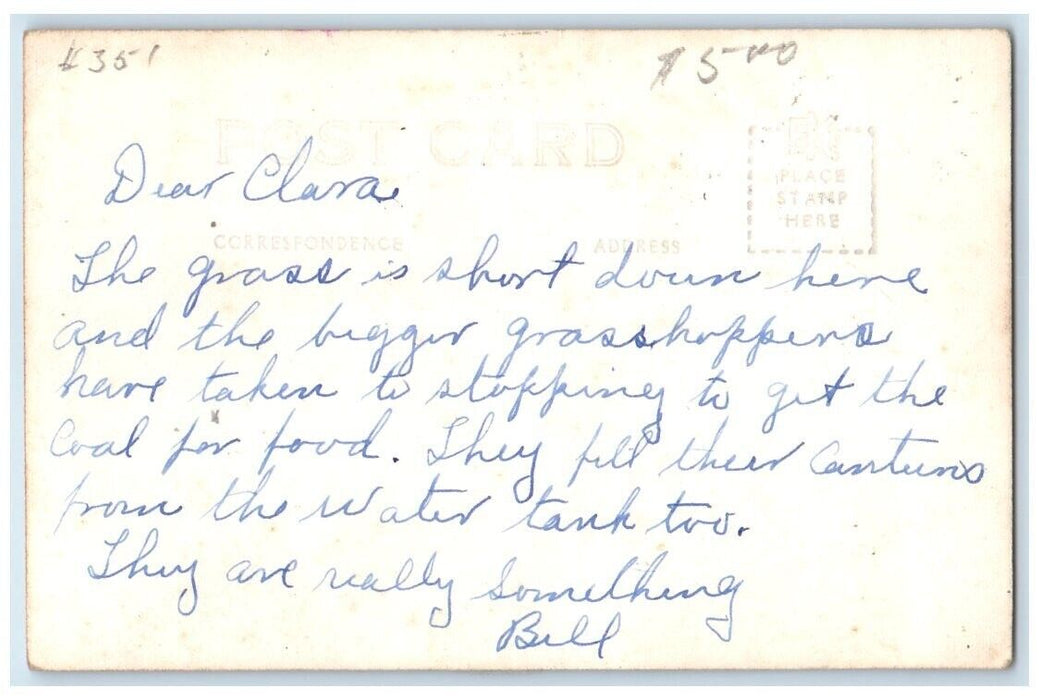 K351 $5.00
POST CARD
PLACE
STAMP
HERE
Dear Clara
CORRESPONDENCE ADDRESS
The grass is short down here
and the bigger grasshoppers
have taken to stopping to get the
Coal for food. They fill their Canteens
from the water tank too.
They are really something
Bill